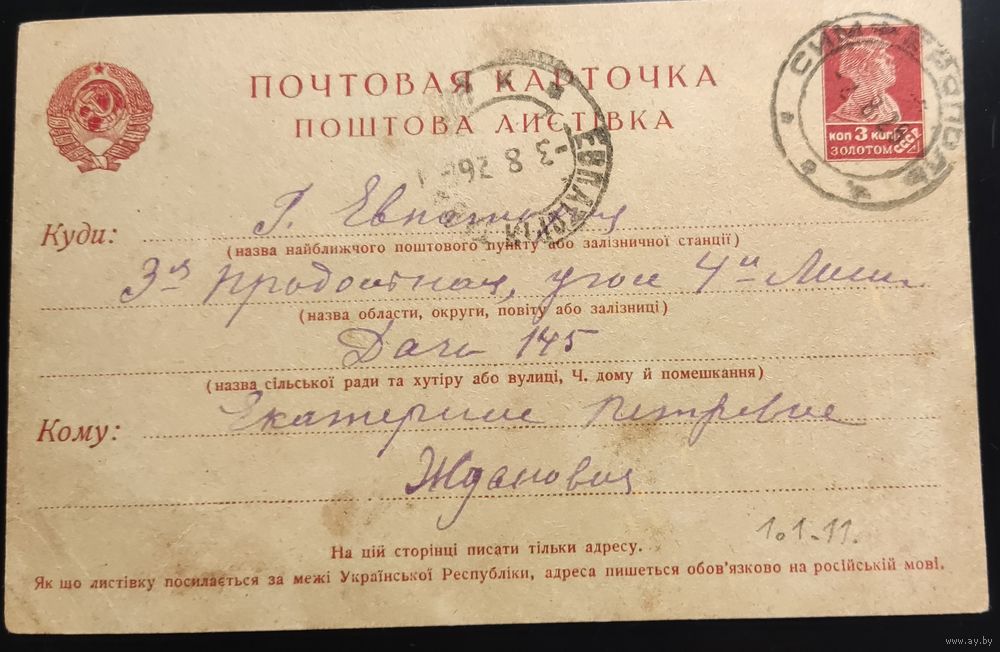 ПОЧТОВАЯ КАРТОЧКА
ПОШТОВА ЛИСТІВКА
СИМФЕРОПОЛЬ
КОП 3 КОП
ЗОЛОТОМ СССР
ЕВПАТОРИЯ
-3 8 26
Куди: Г. Евпатория
(назва найближчого поштового пункту або залізничної станції)
3я продольная, угол 4й Лин.
(назва области, округи, повіту або залізниці)
Дача 145
(назва сільської ради та хутіру або вулиці, Ч. дому й помешкання)
Кому: Екатерине Петровне
Жданович
1.1-11.
На цій сторінці писати тільки адресу.
Як що листівку посилається за межі Української Республіки, адреса пишеться обов'язково на російській мові.
www.ay.by